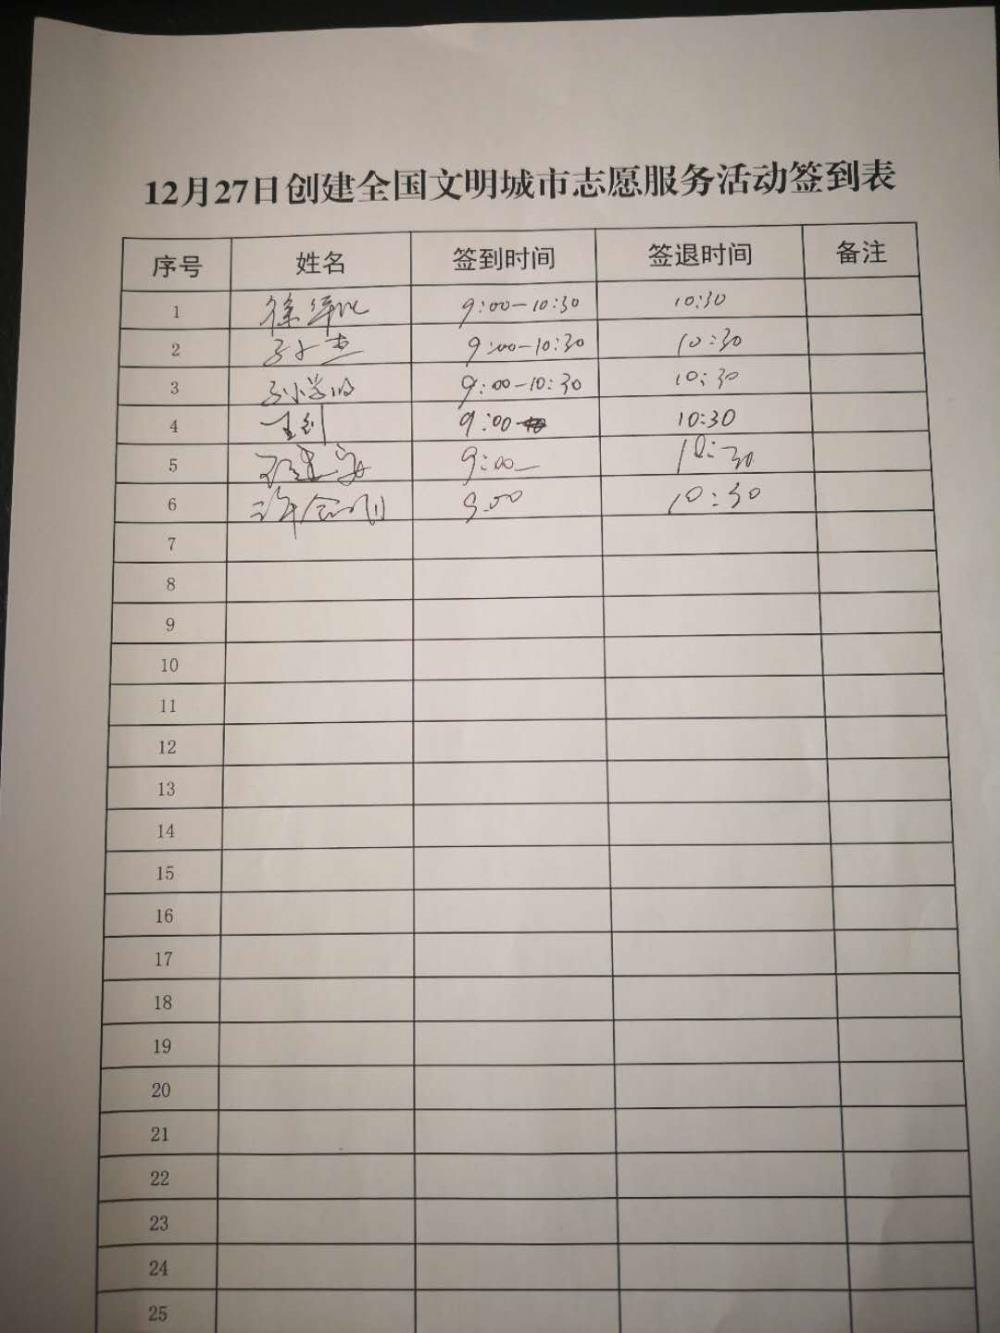 12月27日创建全国文明城市志愿服务活动签到表
序号 姓名 签到时间 签退时间 备注
1 徐 9:00-10:30 10:30
2 9:00-10:30 10:30
3 9:00-10:30 10:30
4 王剑 9:00 10:30
5 9:00 10:30
6 9:00 10:30
7
8
9
10
11
12
13
14
15
16
17
18
19
20
21
22
23
24
25